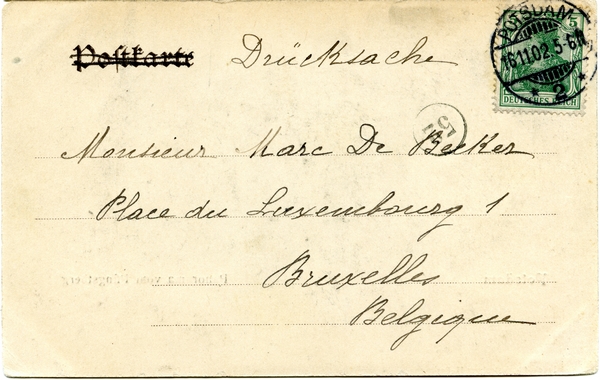 Postkarte Drücksache
POTSDAM
16.11.02.5-6N
* 2 *
5
DEUTSCHES REICH
Monsieur Marc De Becker
Place du Luxembourg 1
Bruxelles
Belgique